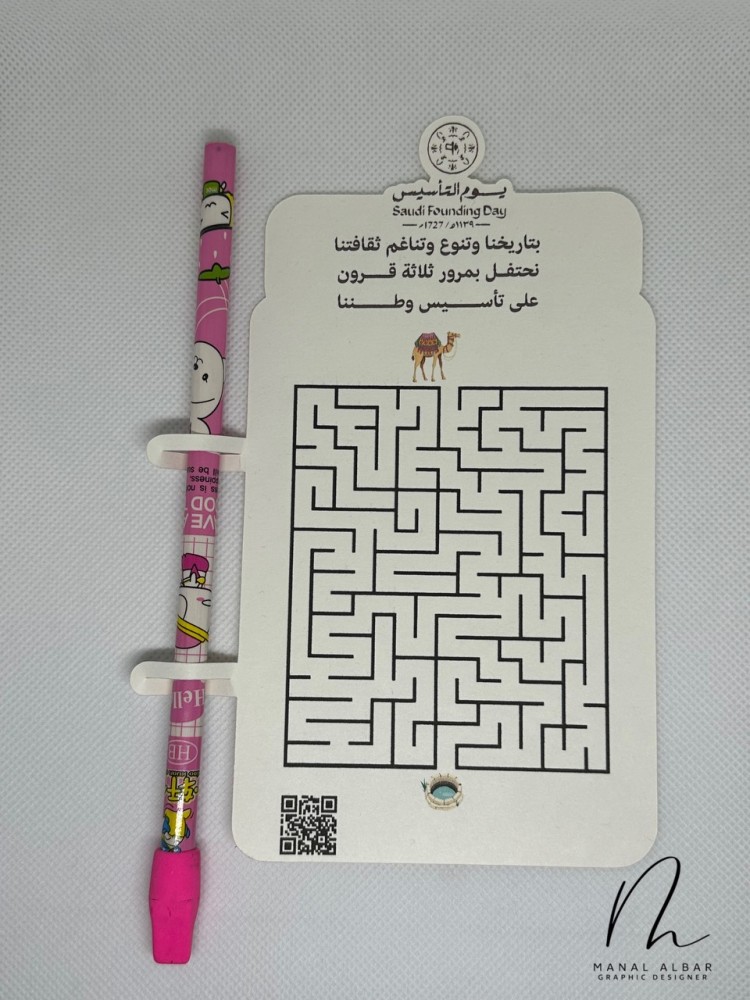 يوم التأسيس
Saudi Founding Day
١١٣٩هـ / 1727م
بتاريخنا وتنوع وتناغم ثقافتنا
نحتفل بمرور ثلاثة قرون
على تأسيس وطننا
HB
Hell
MANAL ALBAR
GRAPHIC DESIGNER